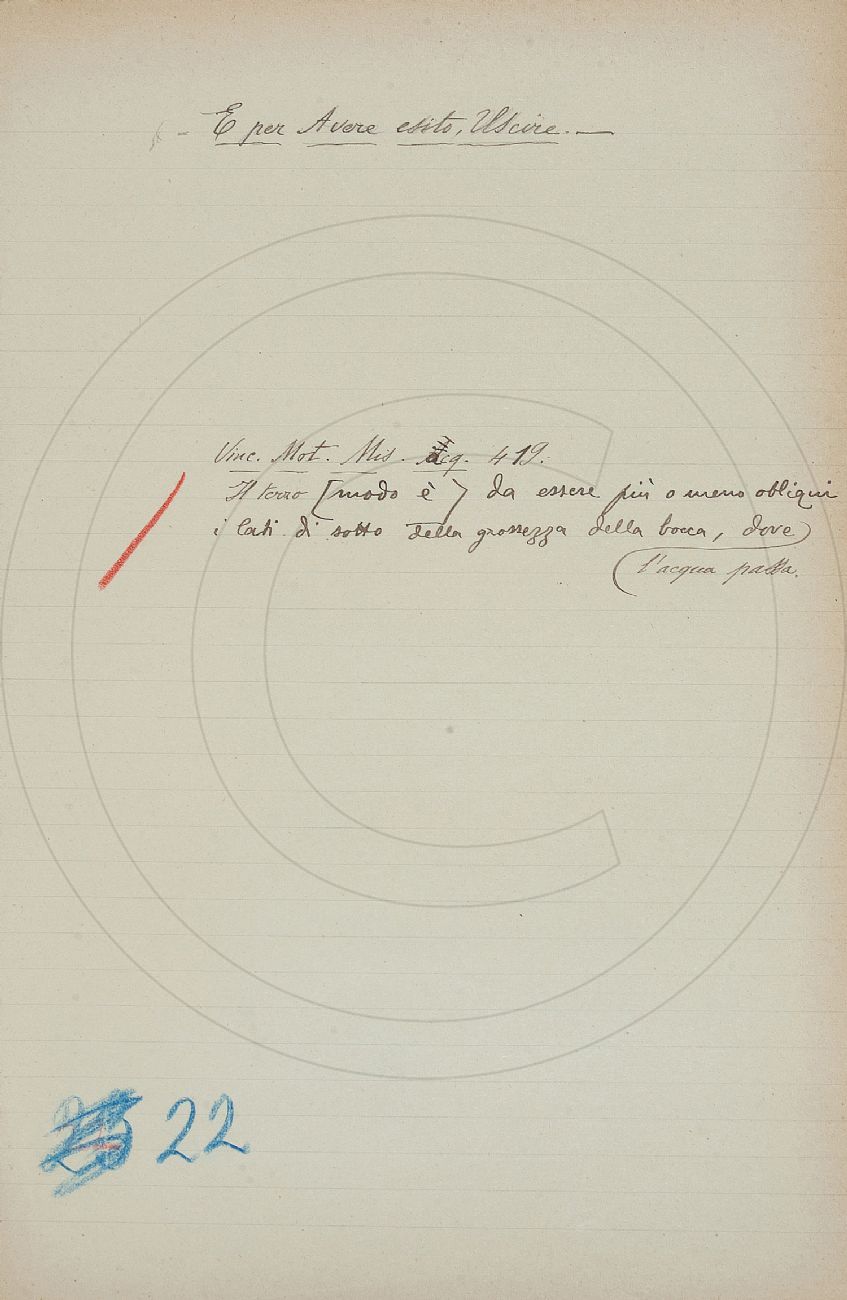 E per Avere esito, Uscire. —
Vinc. Mot. Mis. Acq. 419.
Il terzo [modo è] da essere più o meno obliqui
i lati di sotto della grossezza della bocca, dove
l'acqua passa.
22